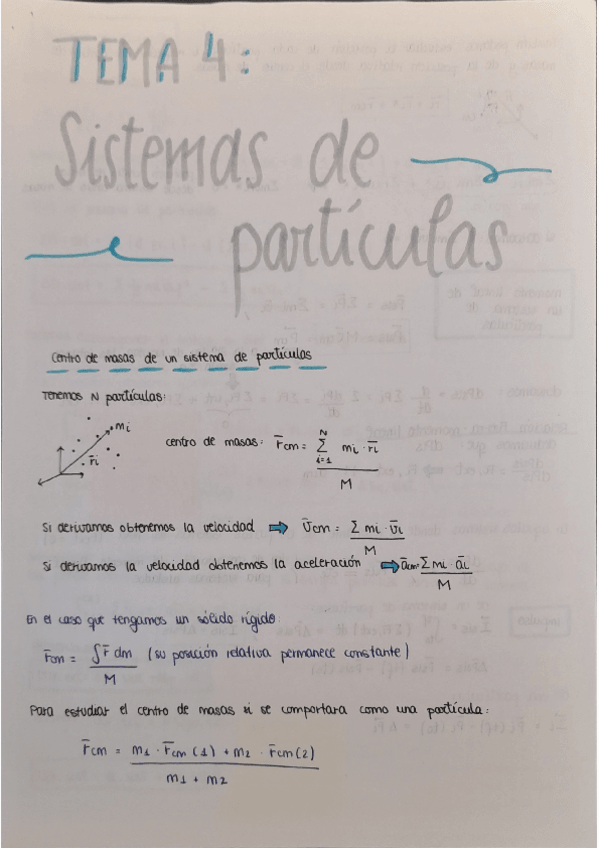 TEMA 4:
Sistemas de
partículas
Centro de masas de un sistema de partículas
Tenemos N partículas:
mi
r̄i
centro de masas: r̄cm = N Σ i=1 mi · r̄i / M
Si derivamos obtenemos la velocidad ⇒ v̄cm = Σ mi · v̄i / M
Si derivamos la velocidad obtenemos la aceleración ⇒ ācm = Σ mi · āi / M
En el caso que tengamos un sólido rígido:
r̄cm = ∫ r̄ dm / M (su posición relativa permanece constante)
Para estudiar el centro de masas si se comportara como una partícula:
r̄cm = m1 · r̄cm (1) + m2 · r̄cm (2) / m1 + m2